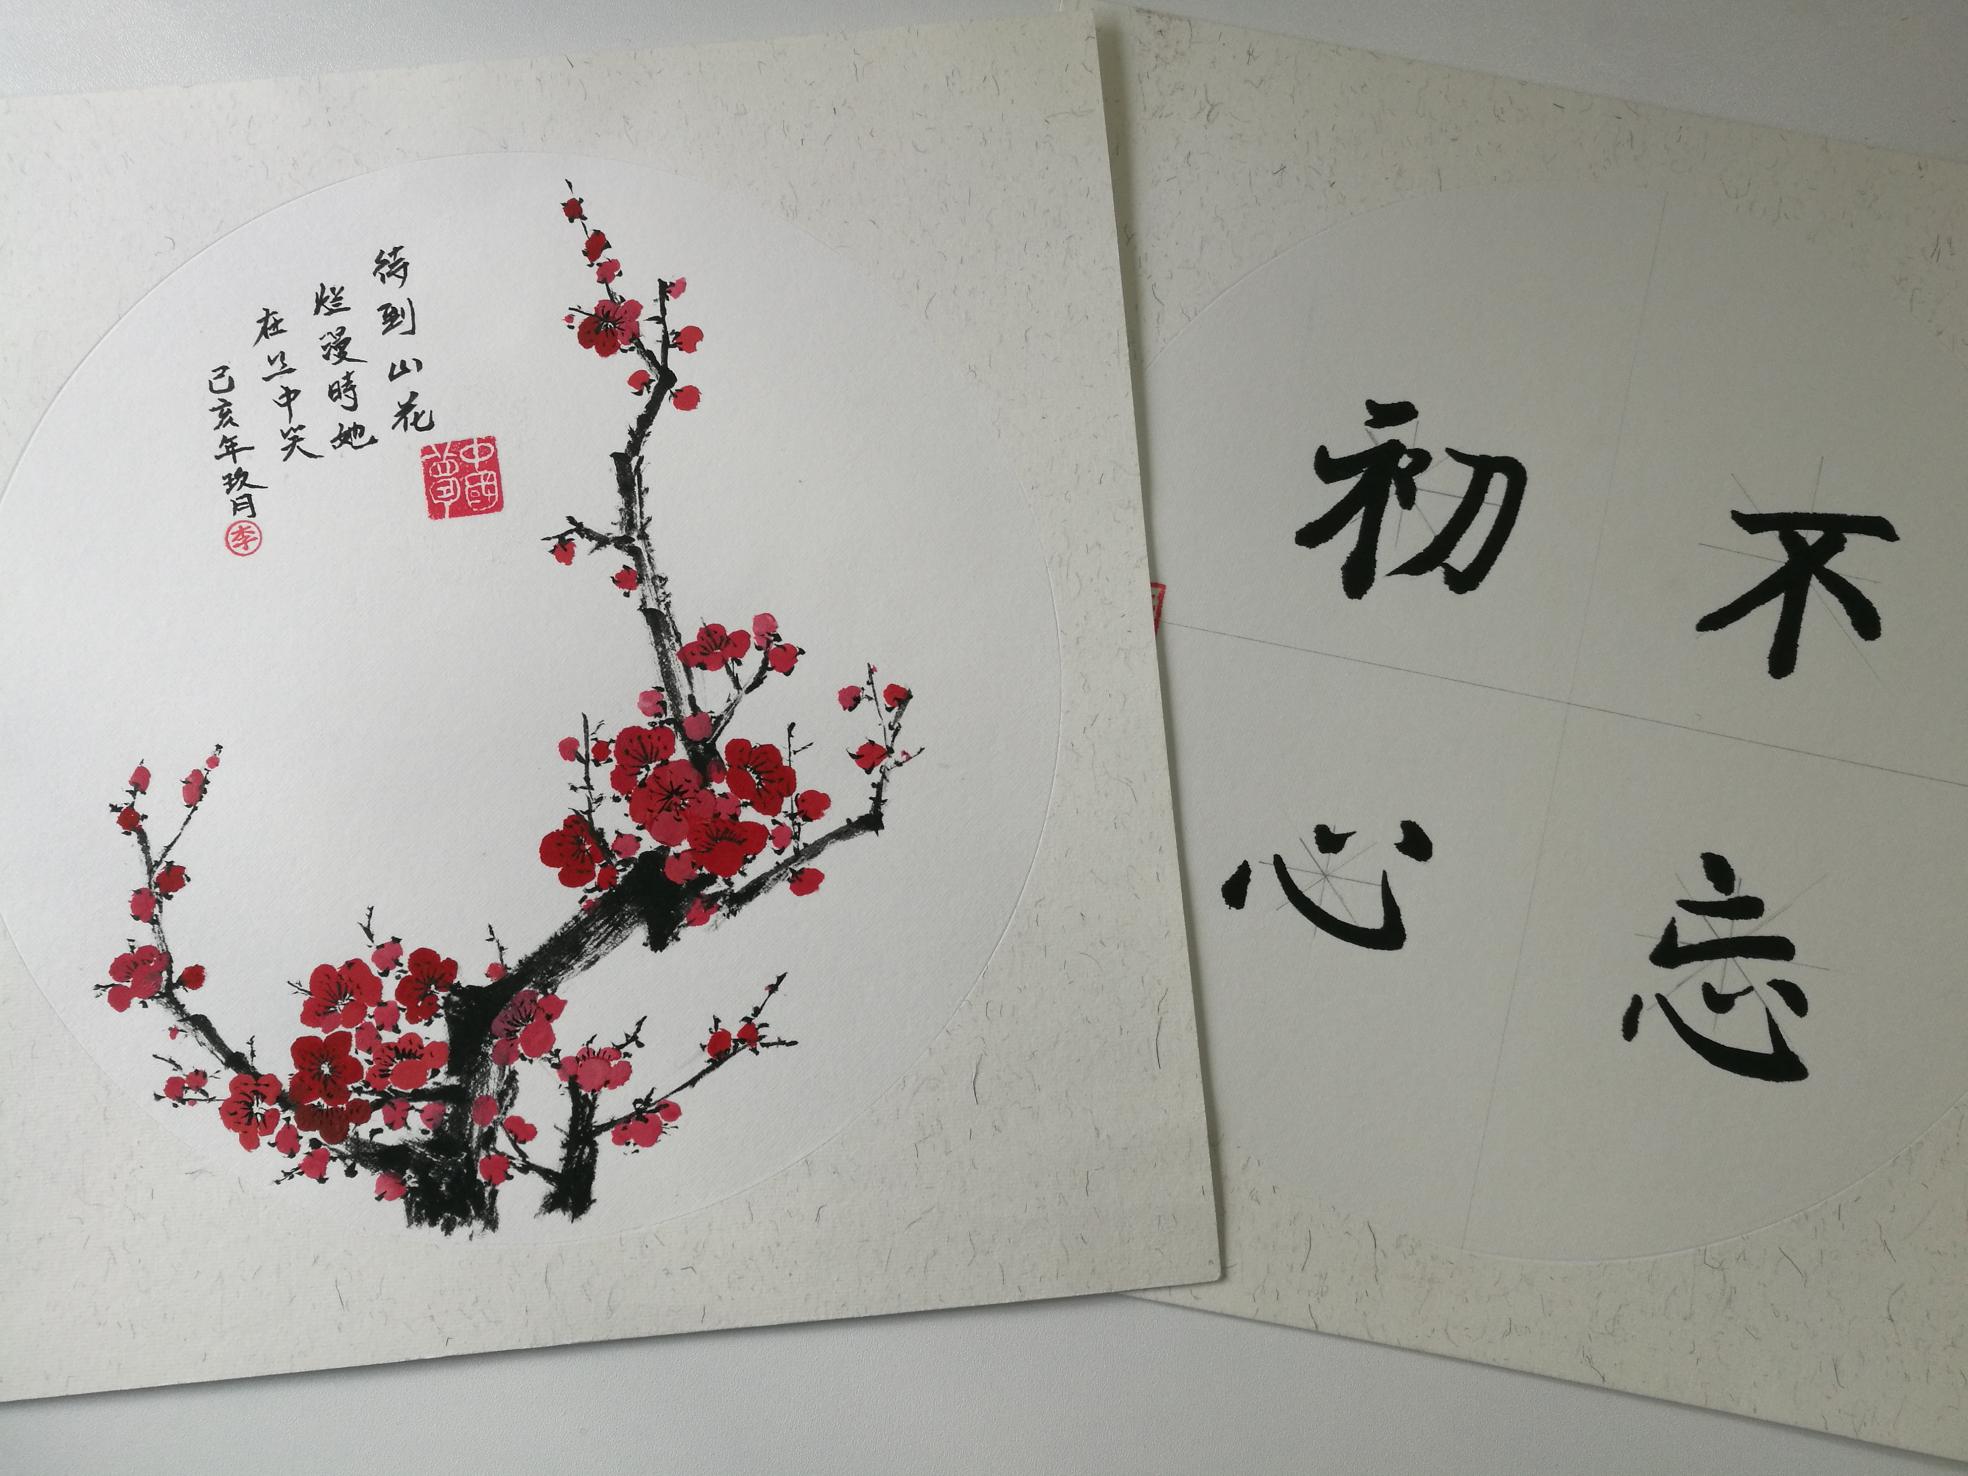 待到山花
烂漫時她
在丛中笑
己亥年玖月
李
中國夢
不忘
初心